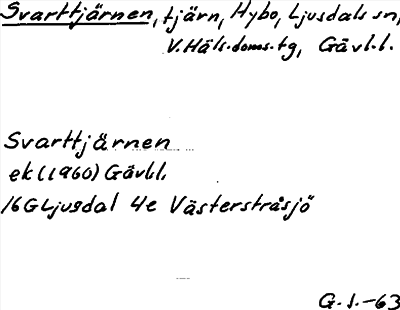 Svarttjärnen, tjärn, Hybo, Ljusdals sn,
V. Häls. doms. tg, Gävl. l.
Svarttjärnen
ek (1960) Gävl.l.
16G Ljusdal 4e Västerstråsjö
G. I. -63